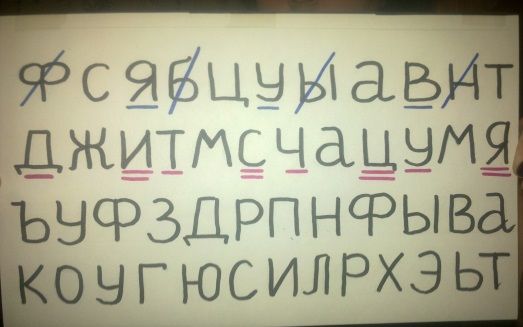 ФСЯБЦУЫаВНТ
ДЖИТМСЧаЦУМЯ
ЪУФЗДРПНФЫВа
КОУГЮСИЛРХЭЬТ